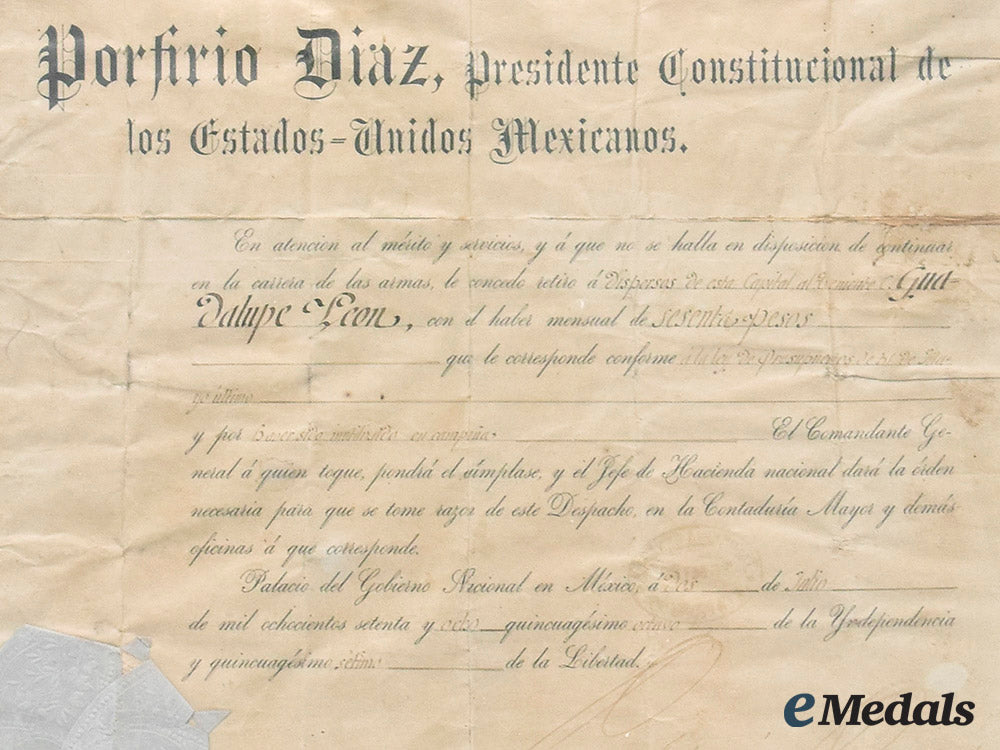 Porfirio Diaz, Presidente Constitucional de
los Estados=Unidos Mexicanos.
En atencion al mérito y servicios, y á que no se halla en disposicion de continuar
en la carrera de las armas, le concedo retiro á Dispersos de esta Capital al Teniente C. Gua-
dalupe Leon, con el haber mensual de sesenta pesos
que le corresponde conforme á la ley de Presupuestos de 31 de Ma-
yo último
y por haberse inutilizado en campaña. El Comandante Ge-
neral á quien toque, pondrá el cúmplase, y el Jefe de Hacienda nacional dará la órden
necesaria para que se tome razor de este Despacho, en la Contaduría Mayor y demás
oficinas á que corresponde.
Palacio del Gobierno Nacional en México, á Dos de Julio
de mil ochocientos setenta y ocho quincuagésimo octavo de la Yndependencia
y quincuagésimo setimo de la Libertad.
eMedals